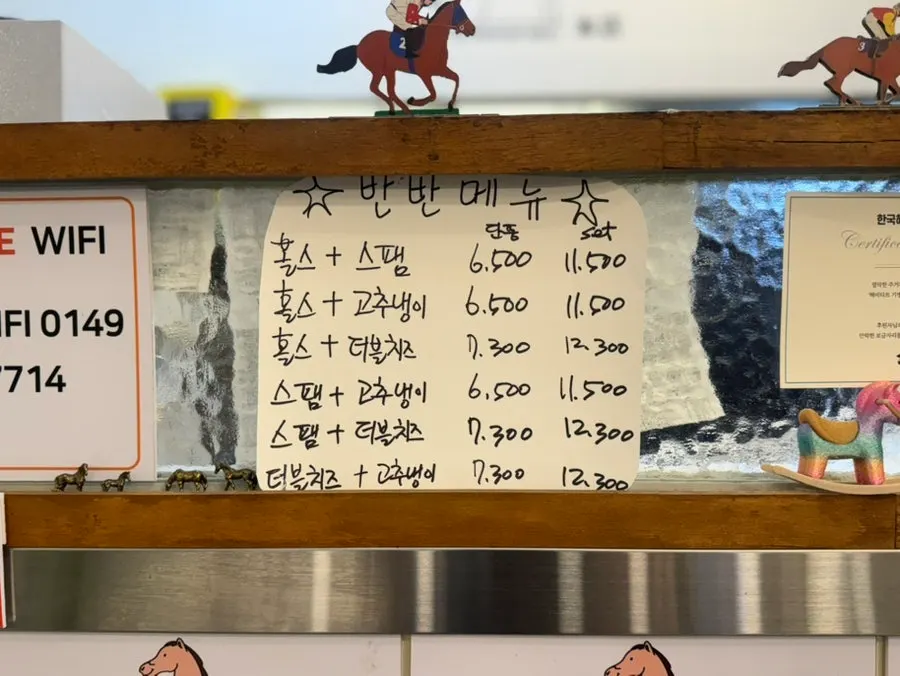 E WIFI
IFI 0149
7714
☆ 반반 메뉴 ☆
단품 set
홀스 + 스팸 6.500 11.500
홀스 + 고추냉이 6.500 11.500
홀스 + 더블치즈 7.300 12.300
스팸 + 고추냉이 6.500 11.500
스팸 + 더블치즈 7.300 12.300
더블치즈 + 고추냉이 7.300 12.300
한국해
Certific
2
3